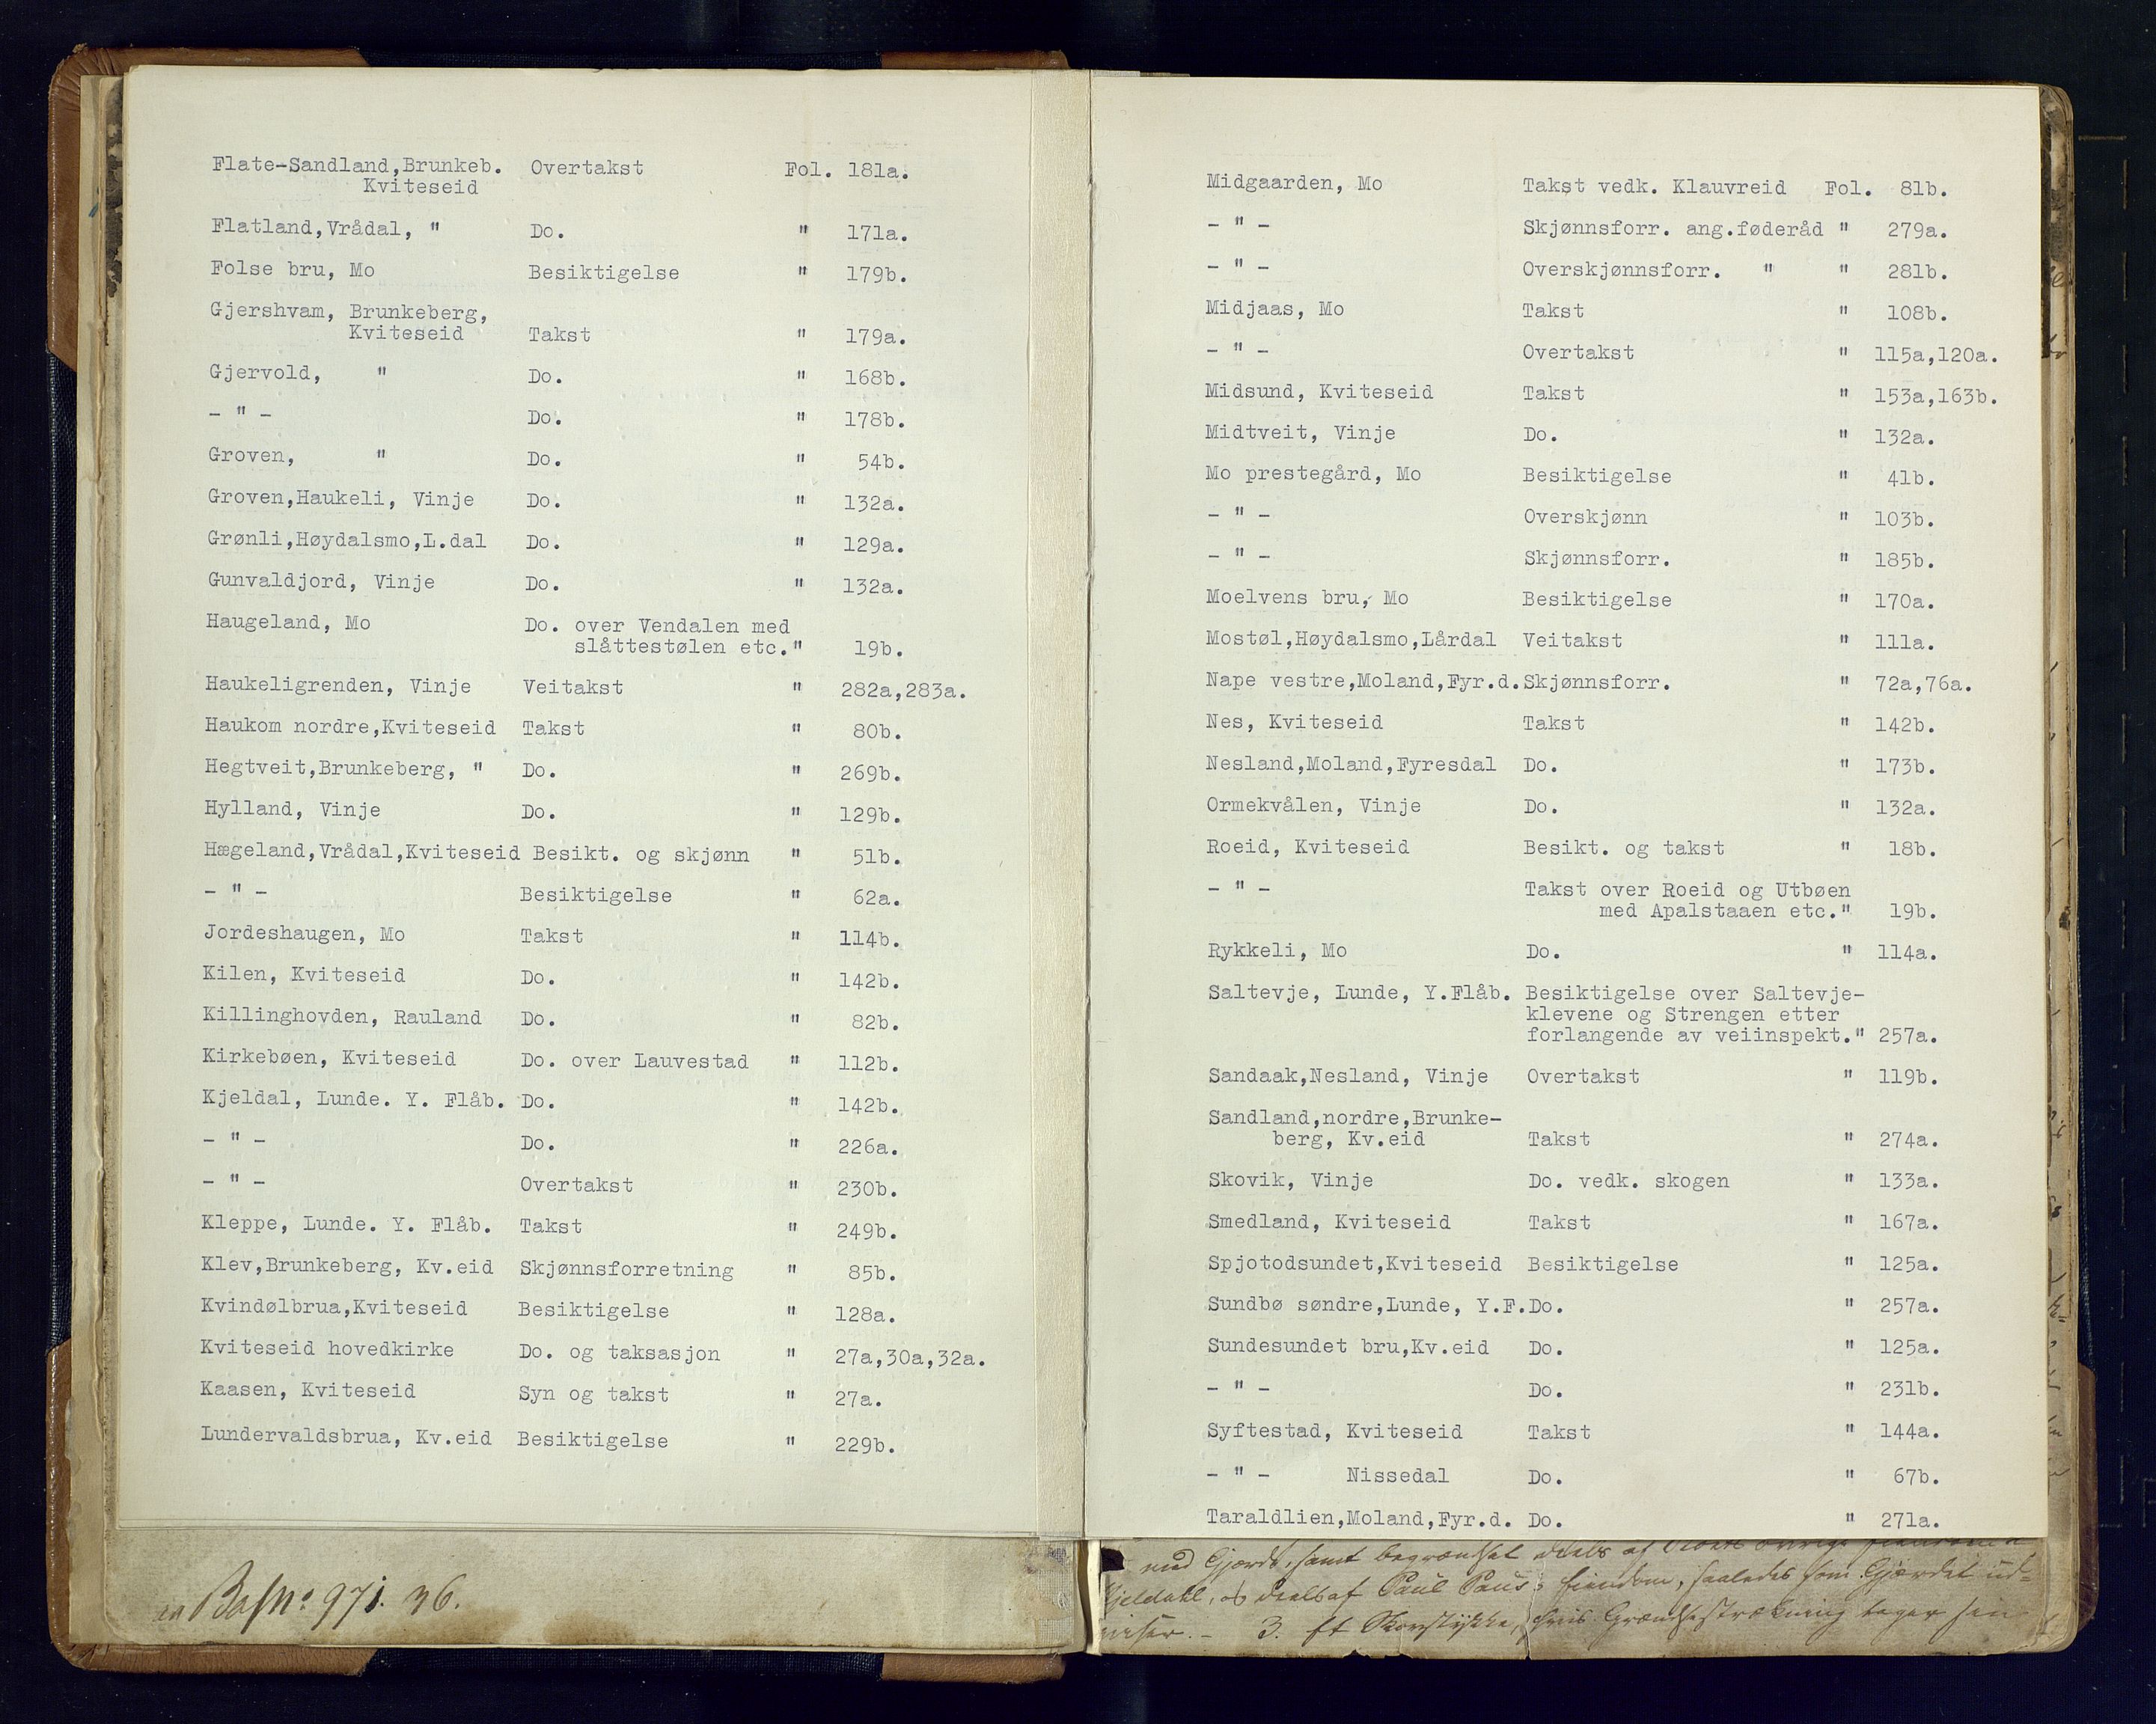 Flate-Sandland,Brunkeb. Overtakst Fol. 181a.
Kviteseid
Flatland,Vrådal, " Do. " 171a.
Folse bru, Mo Besiktigelse " 179b.
Gjershvam, Brunkeberg,
Kviteseid Takst " 179a.
Gjervold, " Do. " 168b.
- " - Do. " 178b.
Groven, " Do. " 54b.
Groven,Haukeli, Vinje Do. " 132a.
Grønli,Høydalsmo,L.dal Do. " 129a.
Gunvaldjord, Vinje Do. " 132a.
Haugeland, Mo Do. over Vendalen med
slåttestølen etc." 19b.
Haukeligrenden, Vinje Veitakst " 282a,283a.
Haukom nordre,Kviteseid Takst " 80b.
Hegtveit,Brunkeberg, " Do. " 269b.
Hylland, Vinje Do. " 129b.
Hægeland,Vrådal,Kviteseid Besikt. og skjønn " 51b.
- " - Besiktigelse " 62a.
Jordeshaugen, Mo Takst " 114b.
Kilen, Kviteseid Do. " 142b.
Killinghovden, Rauland Do. " 82b.
Kirkebøen, Kviteseid Do. over Lauvestad " 112b.
Kjeldal, Lunde. Y. Flåb. Do. " 142b.
- " - Do. " 226a.
- " - Overtakst " 230b.
Kleppe, Lunde. Y. Flåb. Takst " 249b.
Klev,Brunkeberg, Kv.eid Skjønnsforretning " 85b.
Kvindølbrua,Kviteseid Besiktigelse " 128a.
Kviteseid hovedkirke Do. og taksasjon " 27a,30a,32a.
Kaasen, Kviteseid Syn og takst " 27a.
Lundervaldsbrua, Kv.eid Besiktigelse " 229b.
Midgaarden, Mo Takst vedk. Klauvreid Fol. 81b.
- " - Skjønnsforr. ang.føderåd " 279a.
- " - Overskjønnsforr. " " 281b.
Midjaas, Mo Takst " 108b.
- " - Overtakst " 115a,120a.
Midsund, Kviteseid Takst " 153a,163b.
Midtveit, Vinje Do. " 132a.
Mo prestegård, Mo Besiktigelse " 41b.
- " - Overskjønn " 103b.
- " - Skjønnsforr. " 185b.
Moelvens bru, Mo Besiktigelse " 170a.
Mostøl,Høydalsmo,Lårdal Veitakst " 111a.
Nape vestre,Moland,Fyr.d.Skjønnsforr. " 72a,76a.
Nes, Kviteseid Takst " 142b.
Nesland,Moland,Fyresdal Do. " 173b.
Ormekvålen, Vinje Do. " 132a.
Roeid, Kviteseid Besikt. og takst " 18b.
- " - Takst over Roeid og Utbøen
med Apalstaaen etc." 19b.
Rykkeli, Mo Do. " 114a.
Saltevje, Lunde, Y.Flåb. Besiktigelse over Saltevje-
klevene og Strengen etter
forlangende av veiinspekt." 257a.
Sandaak,Nesland, Vinje Overtakst " 119b.
Sandland,nordre,Brunke-
berg, Kv.eid Takst " 274a.
Skovik, Vinje Do. vedk. skogen " 133a.
Smedland, Kviteseid Takst " 167a.
Spjotodsundet,Kviteseid Besiktigelse " 125a.
Sundbø søndre,Lunde, Y.F.Do. " 257a.
Sundesundet bru,Kv.eid Do. " 125a.
- " - Do. " 231b.
Syftestad, Kviteseid Takst " 144a.
- " - Nissedal Do. " 67b.
Taraldlien,Moland,Fyr.d. Do. " 271a.
971. 36.
med Gjærde, samt begrændset deels af
deels af Paul Paus, saaledes som Gjærdet ud-
3. et Skovstykke, hvis Grændsestrækning tager sin